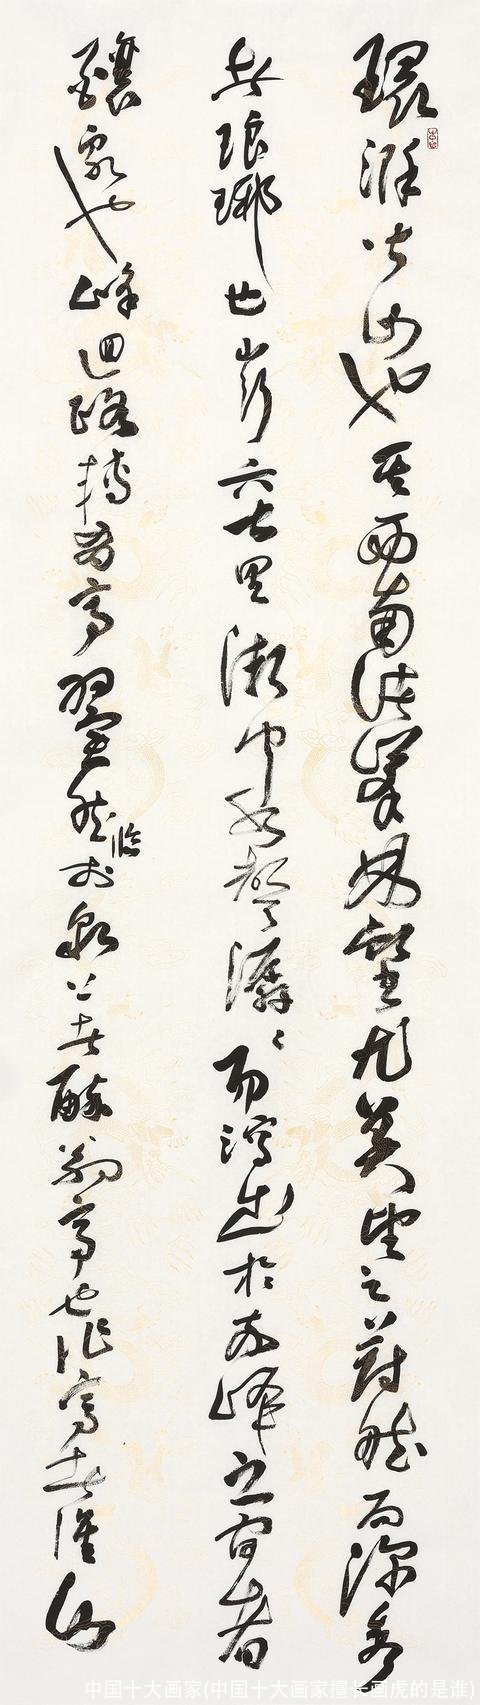 環滁皆山也其西南諸峯林壑尤美望之蔚然而深秀
者琅琊也山行六七里漸聞水聲潺〻而瀉出於兩峰之間者
釀泉也峰迴路轉有亭翼然臨於泉上者醉翁亭也作亭者誰山
中国十大画家(中国十大画家擅长画虎的是谁)